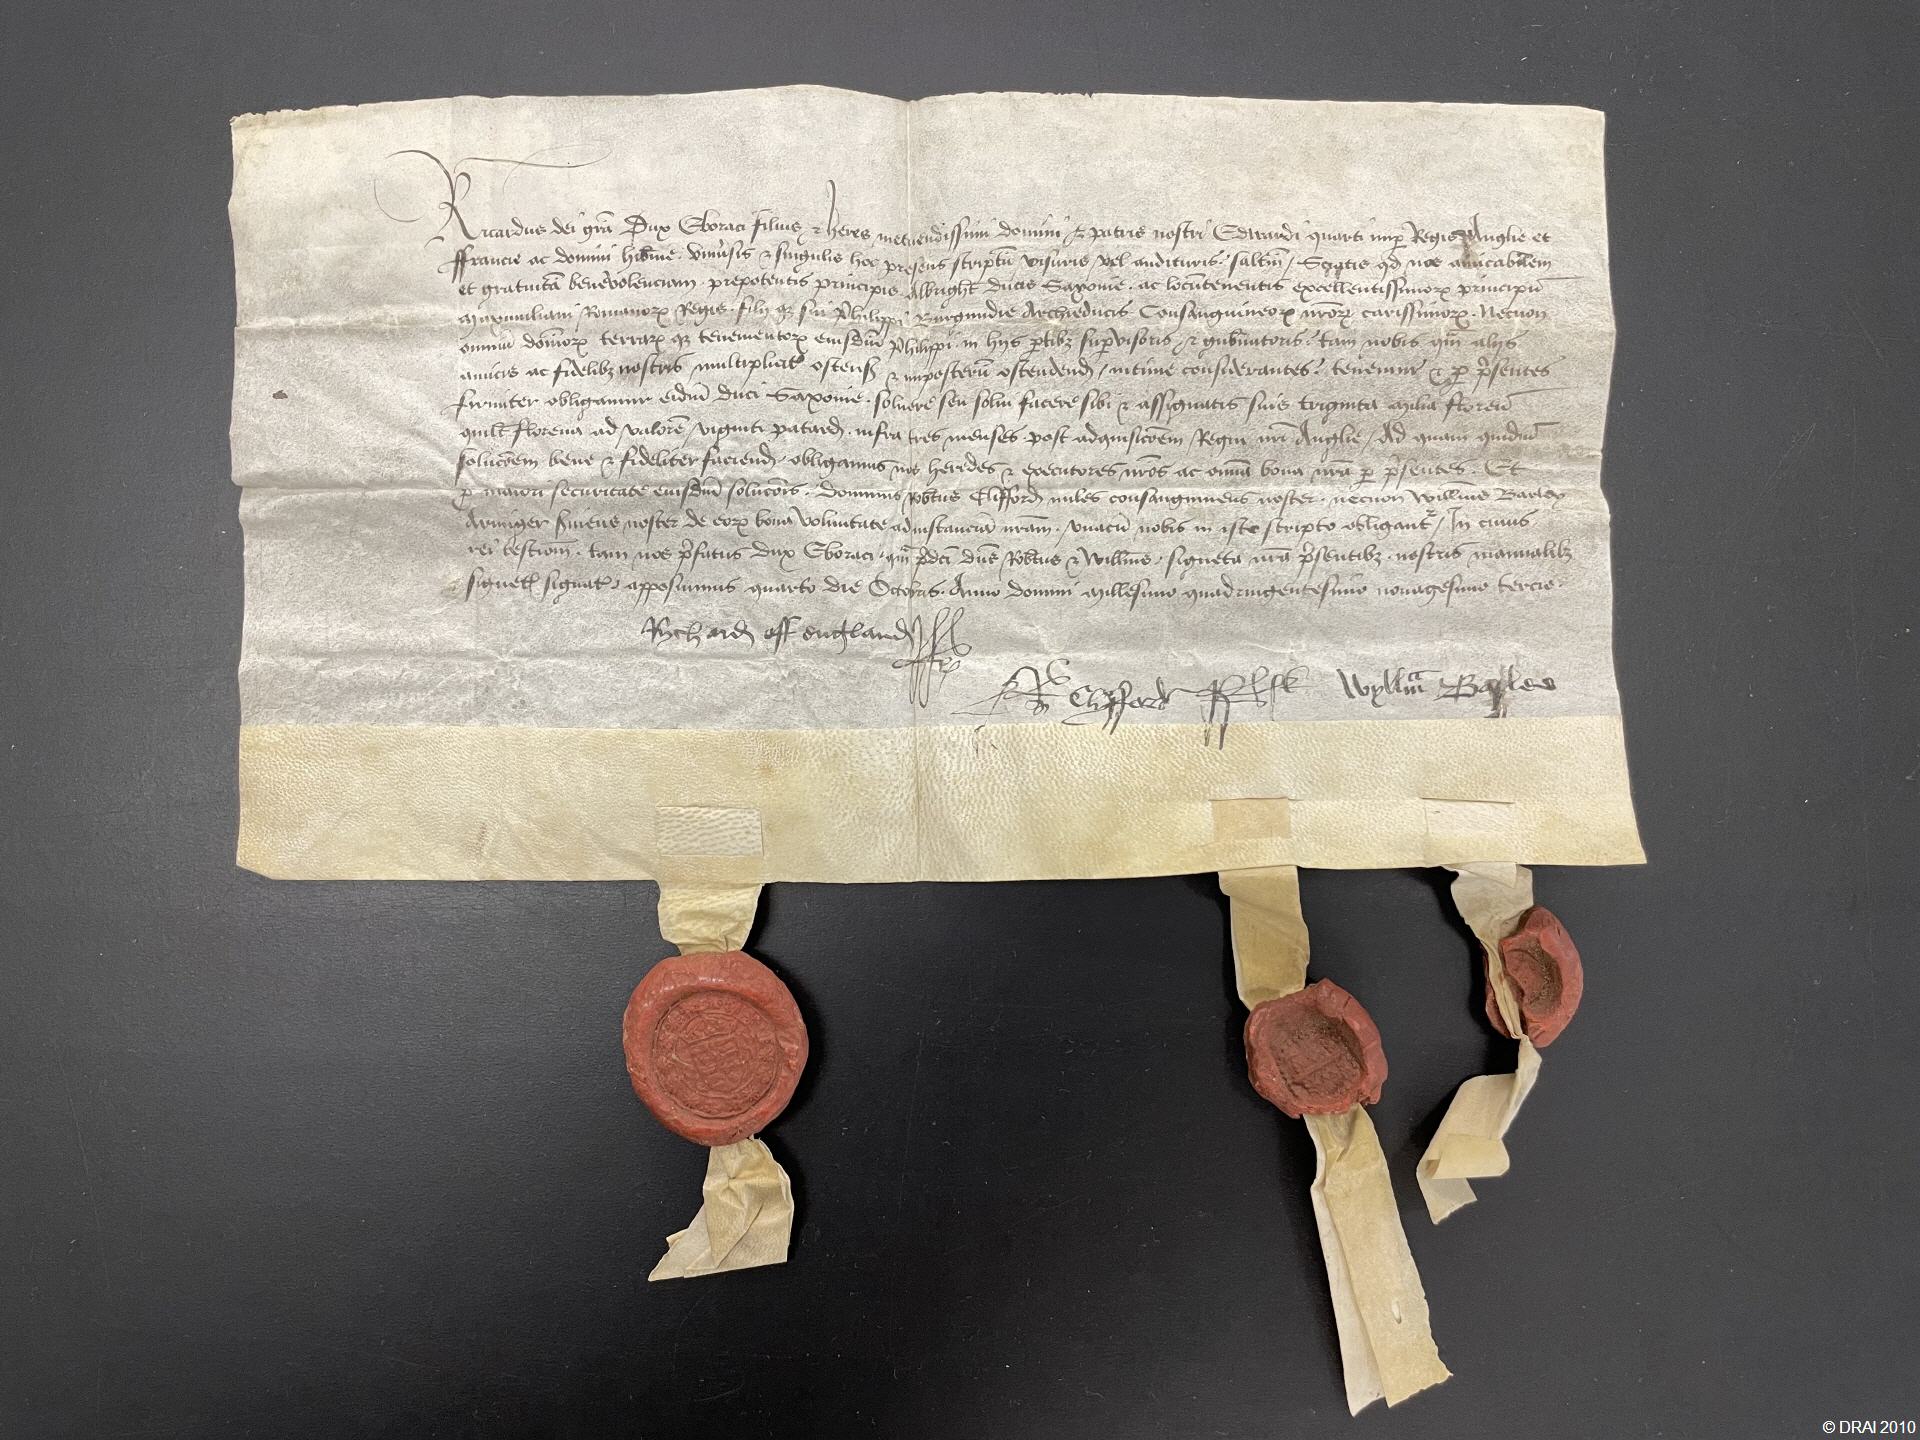 Ricardus dei grã Dux Eboraci filius & heres metuendissimi domini / & patris nostri Edwardi quarti nup Regis Anglie et
ffrancie ac domini hib̃nie . vniũsis & singulis hoc presens scriptũ visuris / vel audituris / salt̃m / Sciatis qđ nos amicabilem
et gratuitã beneuolenciam . prepotentis principis Albright ducis Saxonie . ac locũtenentis excellentissimoꝝ principũ
Maximiliani Romanoꝝ Regis . filij qꝫ sui Philippi Burgundie Archiducis Consanguineoꝝ nrõꝝ carissimoꝝ . Necnon
omniũ domĩoꝝ terraꝝ qꝫ tenementoꝝ eiusdm̃ Philippi . in hijs ꝑtibꝫ suꝑvisoris / & gub̃natoris / tam nobis qm̃ alijs
amicis ac fidelibꝫ nostris multiplicit̃ ostens̃ & imposterũ ostendend̃ / intime considerantes / tenemur & ꝑ p̃sentes
firmiter obligamur eidm̃ duci Saxonie . soluere seu solui facere sibi & assignatis suis triginta milia florenũ
quilt̃ florenũ ad valorẽ / viginti patard̃ . infra tres menses . post adquisicõem / Regni nr̃i Anglie / Ad quam quidm̃
solucõem bene & fideliter faciend̃ . obligamus nos heredes & executores nrõs ac omĩa bona nrã ꝑ p̃sentes . Et
ꝑ maiori securitate eiusdm̃ solucõis . dominus Rob̃tus Clifford miles consanguineus noster . necnon Willm̃us Barley
Armiger s̃uiens noster de eoꝝ bona voluntate ad instanciã nrãm . vnacũ nobis in isto scripto obligant̃ / In cuius
rei testiom̃ . tam nos p̃fatus dux Eboraci . qm̃ p̃dc̃i dñs Rob̃tus & Willm̃us . signeta nrã p̃sentibꝫ . nostris manualibꝫ
signet̃ signat̃ . apposuimus quarto die Octobris . Anno domini Millesimo quadringentesimo nonagesimo tercio .
Rychard off england
Clifford Wyllm̃ Barlee
© DRAI 2010